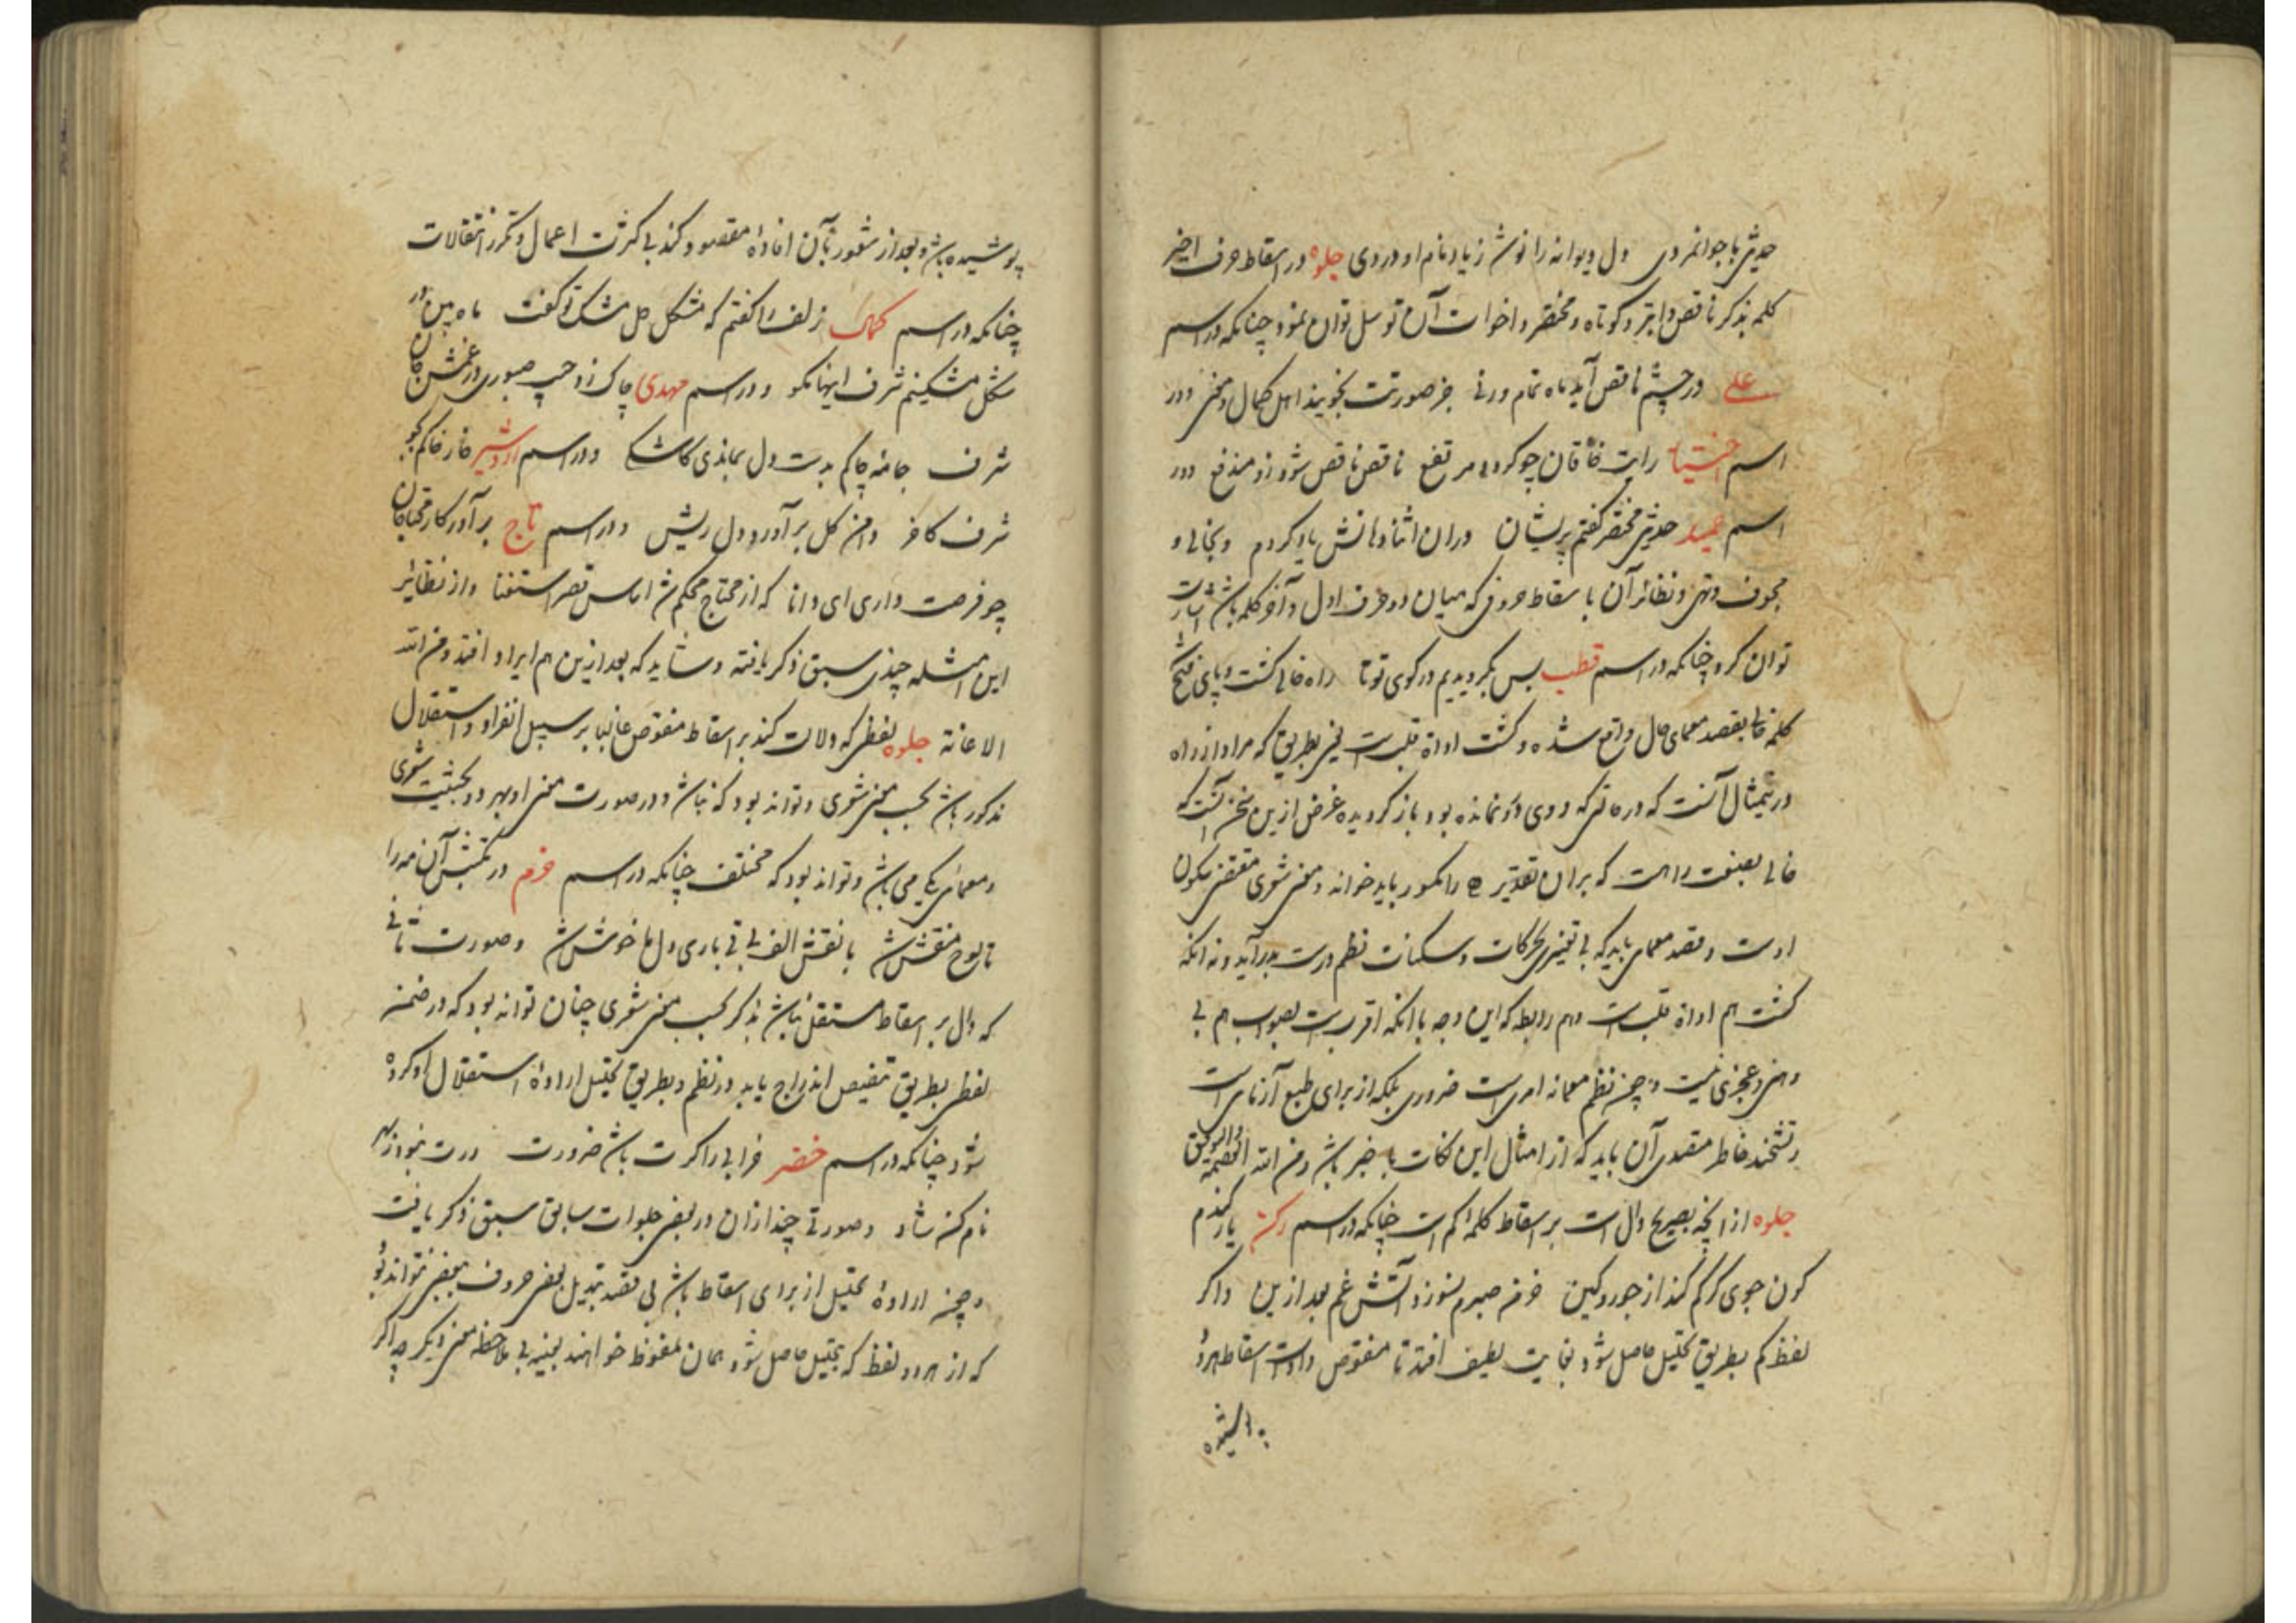 حدیثی با جوانمردی دل دیوانه را نوش زیاد نام او دردی جلوه در اسقاط حرف اخیر
کلمه بذکر ناقص و ابتر و کوتاه و مختصر و اخوات آن توسل توان نمود چنانکه در اسم
علی در چشم ناقص آید ماه تمام ورنی جز صورتت نجویند اهل کمال و معنی ودر
اسم اختیار رایت خاقان چو کردی مرتفع ناقص ناقص شود زو مندفع ودر
اسم حمید حدیثی مختصر گفتم پریشان دران اثنا دهانش یاد کردم و بخالی و
مجوف و تهی و نظائر آن باسقاط حروفی که میان دو حرف اول و آخر کلمه باشد اشارت
توان کرد چنانکه در اسم قطب بس بگردیدیم در کوی تو تا راه خالی گشت و پای
کلمه خالی بقصد معمای حال واقع شده و گشت اداة قلبست یعنی بطریقی که مراد از راه
درین مثال آنست که دره که دروی نمانده بود باز گردیده غرض ازین سخن آنست که
خالی بصفت راهست که بران تقدیر ه را مکسور باید خواند و معنی شعری مقتضی سکون
اوست و قصد معمای باید که بی تغییر حرکات و سکنات نظم درست برآید و نه آنکه
گشت هم اداة قلبست و هم رابطه که این وجه با آنکه اقربست بصواب هم بی
وهنی و عجزی نیست و چون نظم معما نه امریست ضروری بلکه از برای طبع آزمایی است
و تشحیذ خاطر مقصدی آن باید که از امثال این نکات با خبر باشد و من الله العصمة والتوفیق
جلوه از آنچه بصریح دال است بر اسقاط کلمه کم است چنانکه در اسم رکن یار گندم
گون جوی گر کم کند از جور و کین خرمن صبرم نسوزد آتش غم بعد ازین و اگر
لفظ کم بطریق تحلیل حاصل شود بغایت لطیف افتد تا منقوص و ادات اسقاط هر دو
پوشیده
پوشیده باشد و بعد از شعور بآن افاده مقصود کند بی کثرت اعمال و تکرر انتقالات
چنانکه در اسم کمال زلف را گفتم که مشکل حل مشک گفت ماه من
شکل مشکینم شرف اینها مگو و در اسم مهدی چاک زد جیب صبوری در غمش جان
شرف جامه چاکم بدست دل بماندی کاشکی و در اسم اردشیر خار خاکم
شرف کافر دامن گل برآورد دل ریش و در اسم تاج برآور کار محتاجان
چو فرصت داری ای دانا که از محتاج محکم شد اساس قصر استغنا و از نظایر
این امثله چندی سبق ذکر یافته و شاید که بعد ازین هم ایراد افتد و من الله
الاعانة جلوه لفظی که دلالت کند بر اسقاط منقوص غالبا بر سبیل انفراد و استقلال
مذکور باشد بحسب معنی شعری و تواند بود که نباشد و در صورت معنی او بهر دو حیثیت شعری
و معمائی یکی می باشد و تواند بود که مختلف چنانکه در اسم خرم در مکتبش آن مه را
تا لوح منقش شد با نقش الف بی تی باری دل ما خوش شد و صورت ثانی
که دال بر اسقاط مستقل نباشد بذکر بحسب معنی شعری چنان تواند بود که در ضمن
لفظی بطریق تنقیص اندراج یابد در نظم و بطریق تحلیل اراده استقلال او کرده
شود چنانکه در اسم خضر خرابی را اگرت باشد ضرورت درت نبود
نام کن شاد و صورتی چند ازان در بعضی جلوات سابق سبق ذکر یافت
و چون اراده تحلیل از برای اسقاط باشد بی قصد تبدیل بعضی حروف ببعضی نتواند بود
که از هر دو لفظ که بتحلیل حاصل شود همان ملفوظ خواهند بعینه بی ملاحظه معنی دیگر چه اگر